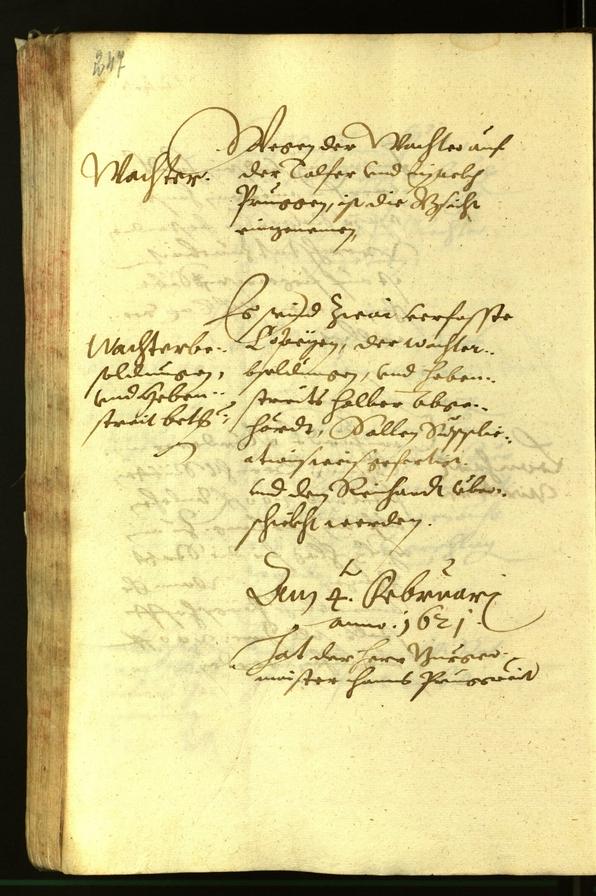 247
Wachter.
Wegen der Wachter auf
der Talfer und
Pruggen, ist die
eingenomen,
Wachterbe-
soldungen,
und Heben-
streit betr:
Es seind zwai verfasste
Copeyen, der wachter-
bsoldungen, und Heben-
streits halber abge-
hördt, Sollen Supplic-
ationsweis gefertigt
und dem Reichardt über-
schickht werden.
Den 4. Februarj
anno. 1621.
hat der herr Burger-
maister Hanns